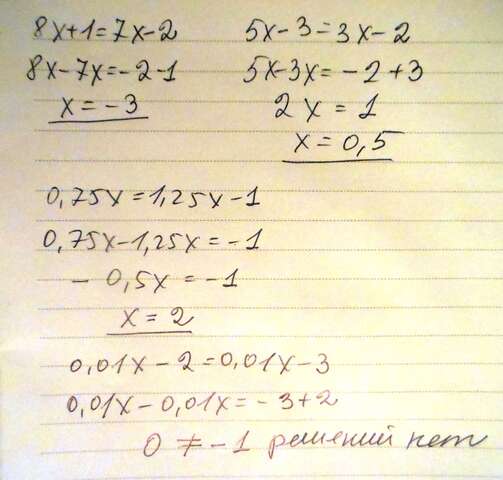 8x+1=7x-2
8x-7x=-2-1
x=-3
5x-3=3x-2
5x-3x=-2+3
2x=1
x=0,5
0,75x=1,25x-1
0,75x-1,25x=-1
-0,5x=-1
x=2
0,01x-2=0,01x-3
0,01x-0,01x=-3+2
0≠-1 решений нет